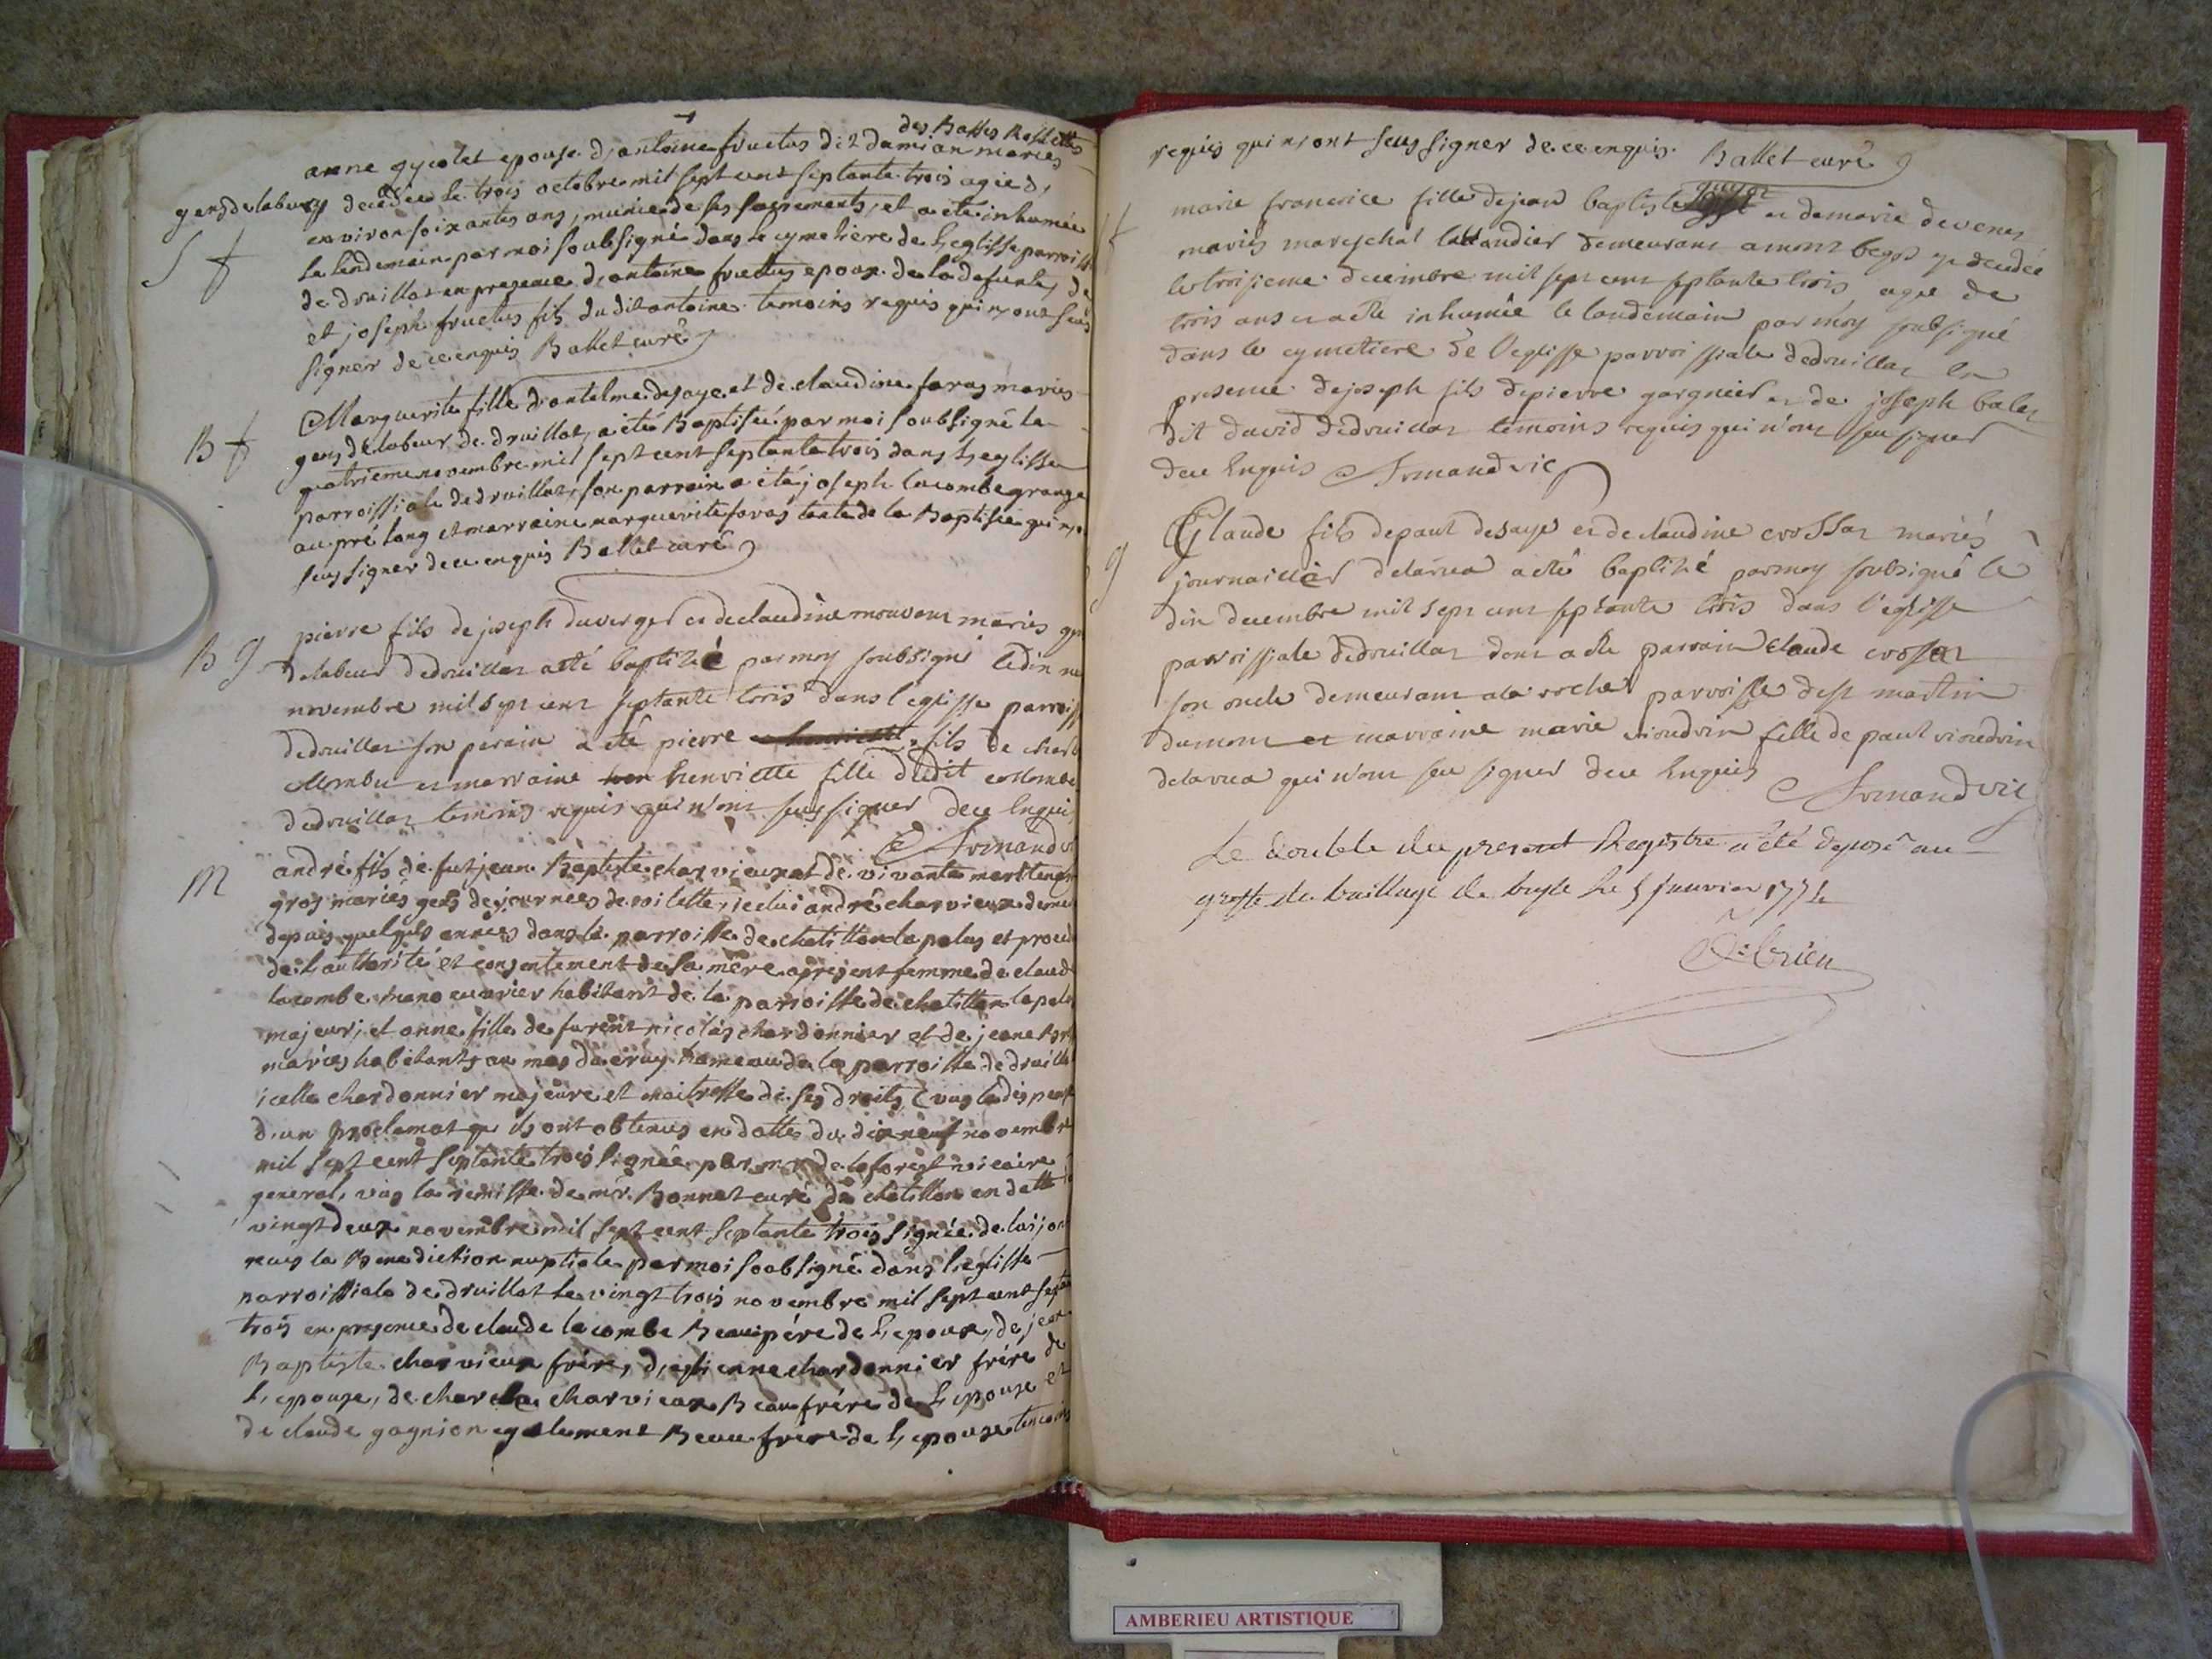 des Basses
anne gycolet epouse d'antoine fructus dit damian mariés
gens de labeurs decedée le trois octobre mil sept cent septante trois agée d'
environ soixantes ans, munie de ses sacrements, et a eté inhumée
le lendemain par moi soubsigné dans le cymetière de l'eglisse parroiss
de druillat en presence d'antoine fructus epoux de la defunte, de
et joseph fructus fils du dit antoine temoins requis qui n'ont seus
signer de ce enquis Ballet curé
S f
Marguerite fille d'antelme desaye et de claudine faras mariés
gens de labeur de druillat, a eté Baptisée par moi soubsigné le
B f
quatrieme novembre mil sept cent septante trois dans l'eglisse
parroissiale de druillat, son parrain a eté joseph lacombe grange
au pré long et marraine marguerite faras tante de la Baptisée qui n'o
seus signer de ce enquis Ballet curé
pierre fils de joseph duverger et de claudine mouvant mariés gen
B g
de labeur de druillat a eté baptizé par moy soubsigné le din ne
novembre mil sept cent septante trois dans l'eglisse parroiss
de druillat son parain a eté pierre fils de
et marraine henriette fille dudit
de druillat temoins requis qui n'ont seus signer de ce enqui
Armand v
M
andré fils de fut jean Baptiste charvieux et de vivante
gros mariés gens de journées de vilette, icelui andré charvieux deme
depuis quelques années dans la parroisse de chatillon la palus et proced
de l'authorité et consentement de sa mere apresent femme de claud
lacombe manoeuvrier habitant de la parroisse de chatillon la palu
majeur, et anne fille de furent nicolas chardonnier et de jeane
mariés habitants au mas du cruy hameau de la parroisse de druilla
icelle chardonnier majeure et maitresse de ses droits, vus la dispense
d'un proclamat qu'ils ont obtenus en datte du dix neuf novembre
mil sept cent septante trois signée par mr de laforest vicaire
general, vus la remisse de mr. Bonnet curé de chatillon en datte
vingt deux novembre mil sept cent septante trois signée de lui, on
reçus la Benediction nuptiale par moi soubsigné dans l'eglisse
parroissiale de druillat le vingt trois novembre mil sept cent septa
trois en presence de claude lacombe Beaupére de l'epoux, de jean
Baptiste charvieux frére, d'estienne chardonnier frére de
l'epouse, de charle charvieux Beaufrére de l'epouse et
de claude gagnion egalement Beaufrere de l'epouse temoins
requis qui n'ont seus signer de ce enquis. Ballet curé
marie francoise fille de jean baptiste et de marie devenes
mariés mareschal taillandier demeurant a mont begos y decedée
le troisieme decembre mil sept cent septante trois agée de
trois ans et a eté inhumée le landemain par moy soubsigné
dans le cymetiere de l'eglisse parroissiale de druillat en
presence de joseph fils de pierre gargnier et de joseph
dit david de druillat temoins requis qui n'ont seu signer
de ce Enquis Armand vic
Claude fils de paul desaye et de claudine crossat mariés
g
journaillier delarua a eté baptizé par moy soubsigné le
din decembre mil sept cent septante trois dans l'eglisse
parroissiale de druillat dont a eté parrain Claude crossat
son oncle demeurant a la roche parroisse de st martin
dumont et marraine marie vioudrin fille de paul vioudrin
delarua qui n'ont seu signer de ce Enquis Armand vic
Le double du present Registre a été deposé au
greffe du baillage de bugle le 5 janvier 1774
AMBERIEU ARTISTIQUE